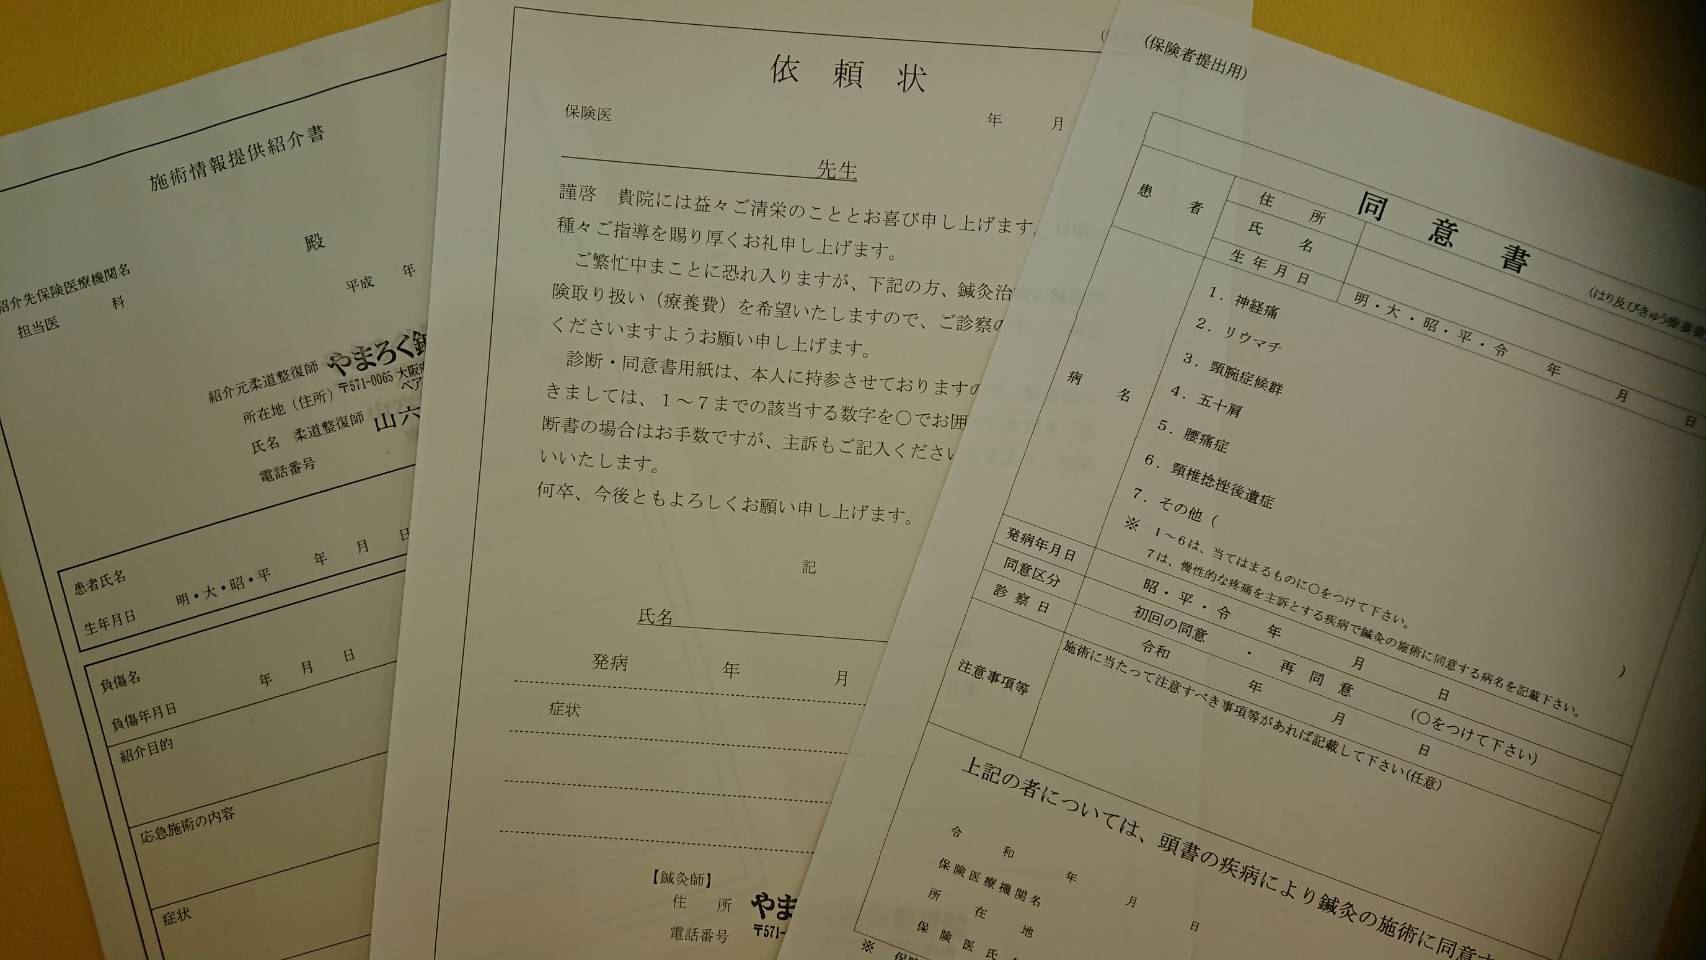 施術情報提供紹介書
殿
紹介先保険医療機関名
担当医 科
平成 年
紹介元柔道整復師 やまろく鍼
所在地(住所) 〒571-0065 大阪
ペア
氏名 柔道整復師 山六
電話番号
患者氏名
生年月日 明・大・昭・平 年 月 日
負傷名
負傷年月日 年 月 日
紹介目的
応急施術の内容
症状
依頼状
保険医 年 月
先生
謹啓 貴院には益々ご清栄のこととお喜び申し上げます。
種々ご指導を賜り厚くお礼申し上げます。
ご繁忙中まことに恐れ入りますが、下記の方、鍼灸治
険取り扱い(療養費)を希望いたしますので、ご診察の
くださいますようお願い申し上げます。
診断・同意書用紙は、本人に持参させておりますの
きましては、1~7までの該当する数字を○でお囲
断書の場合はお手数ですが、主訴もご記入ください
いいたします。
何卒、今後ともよろしくお願い申し上げます。
記
氏名
発病 年 月
症状
【鍼灸師】
住所 やま
〒571-
電話番号
(保険者提出用)
同意書
(はり及びきゅう療養費
患者
住所
氏名
生年月日 明・大・昭・平・令 年 月 日
病名
1. 神経痛
2. リウマチ
3. 頸腕症候群
4. 五十肩
5. 腰痛症
6. 頸椎捻挫後遺症
7. その他( )
※ 1~6は、当てはまるものに○をつけて下さい。
7は、慢性的な疼痛を主訴とする疾病で鍼灸の施術に同意する病名を記載下さい。
発病年月日 昭・平・令 年 月 日
同意区分 初回の同意 ・ 再同意 (○をつけて下さい)
診察日 令和 年 月 日
注意事項等 施術に当たって注意すべき事項等があれば記載して下さい(任意)
上記の者については、頭書の疾病により鍼灸の施術に同意す
令和 年 月 日
保険医療機関名
所在地
保険医氏
※